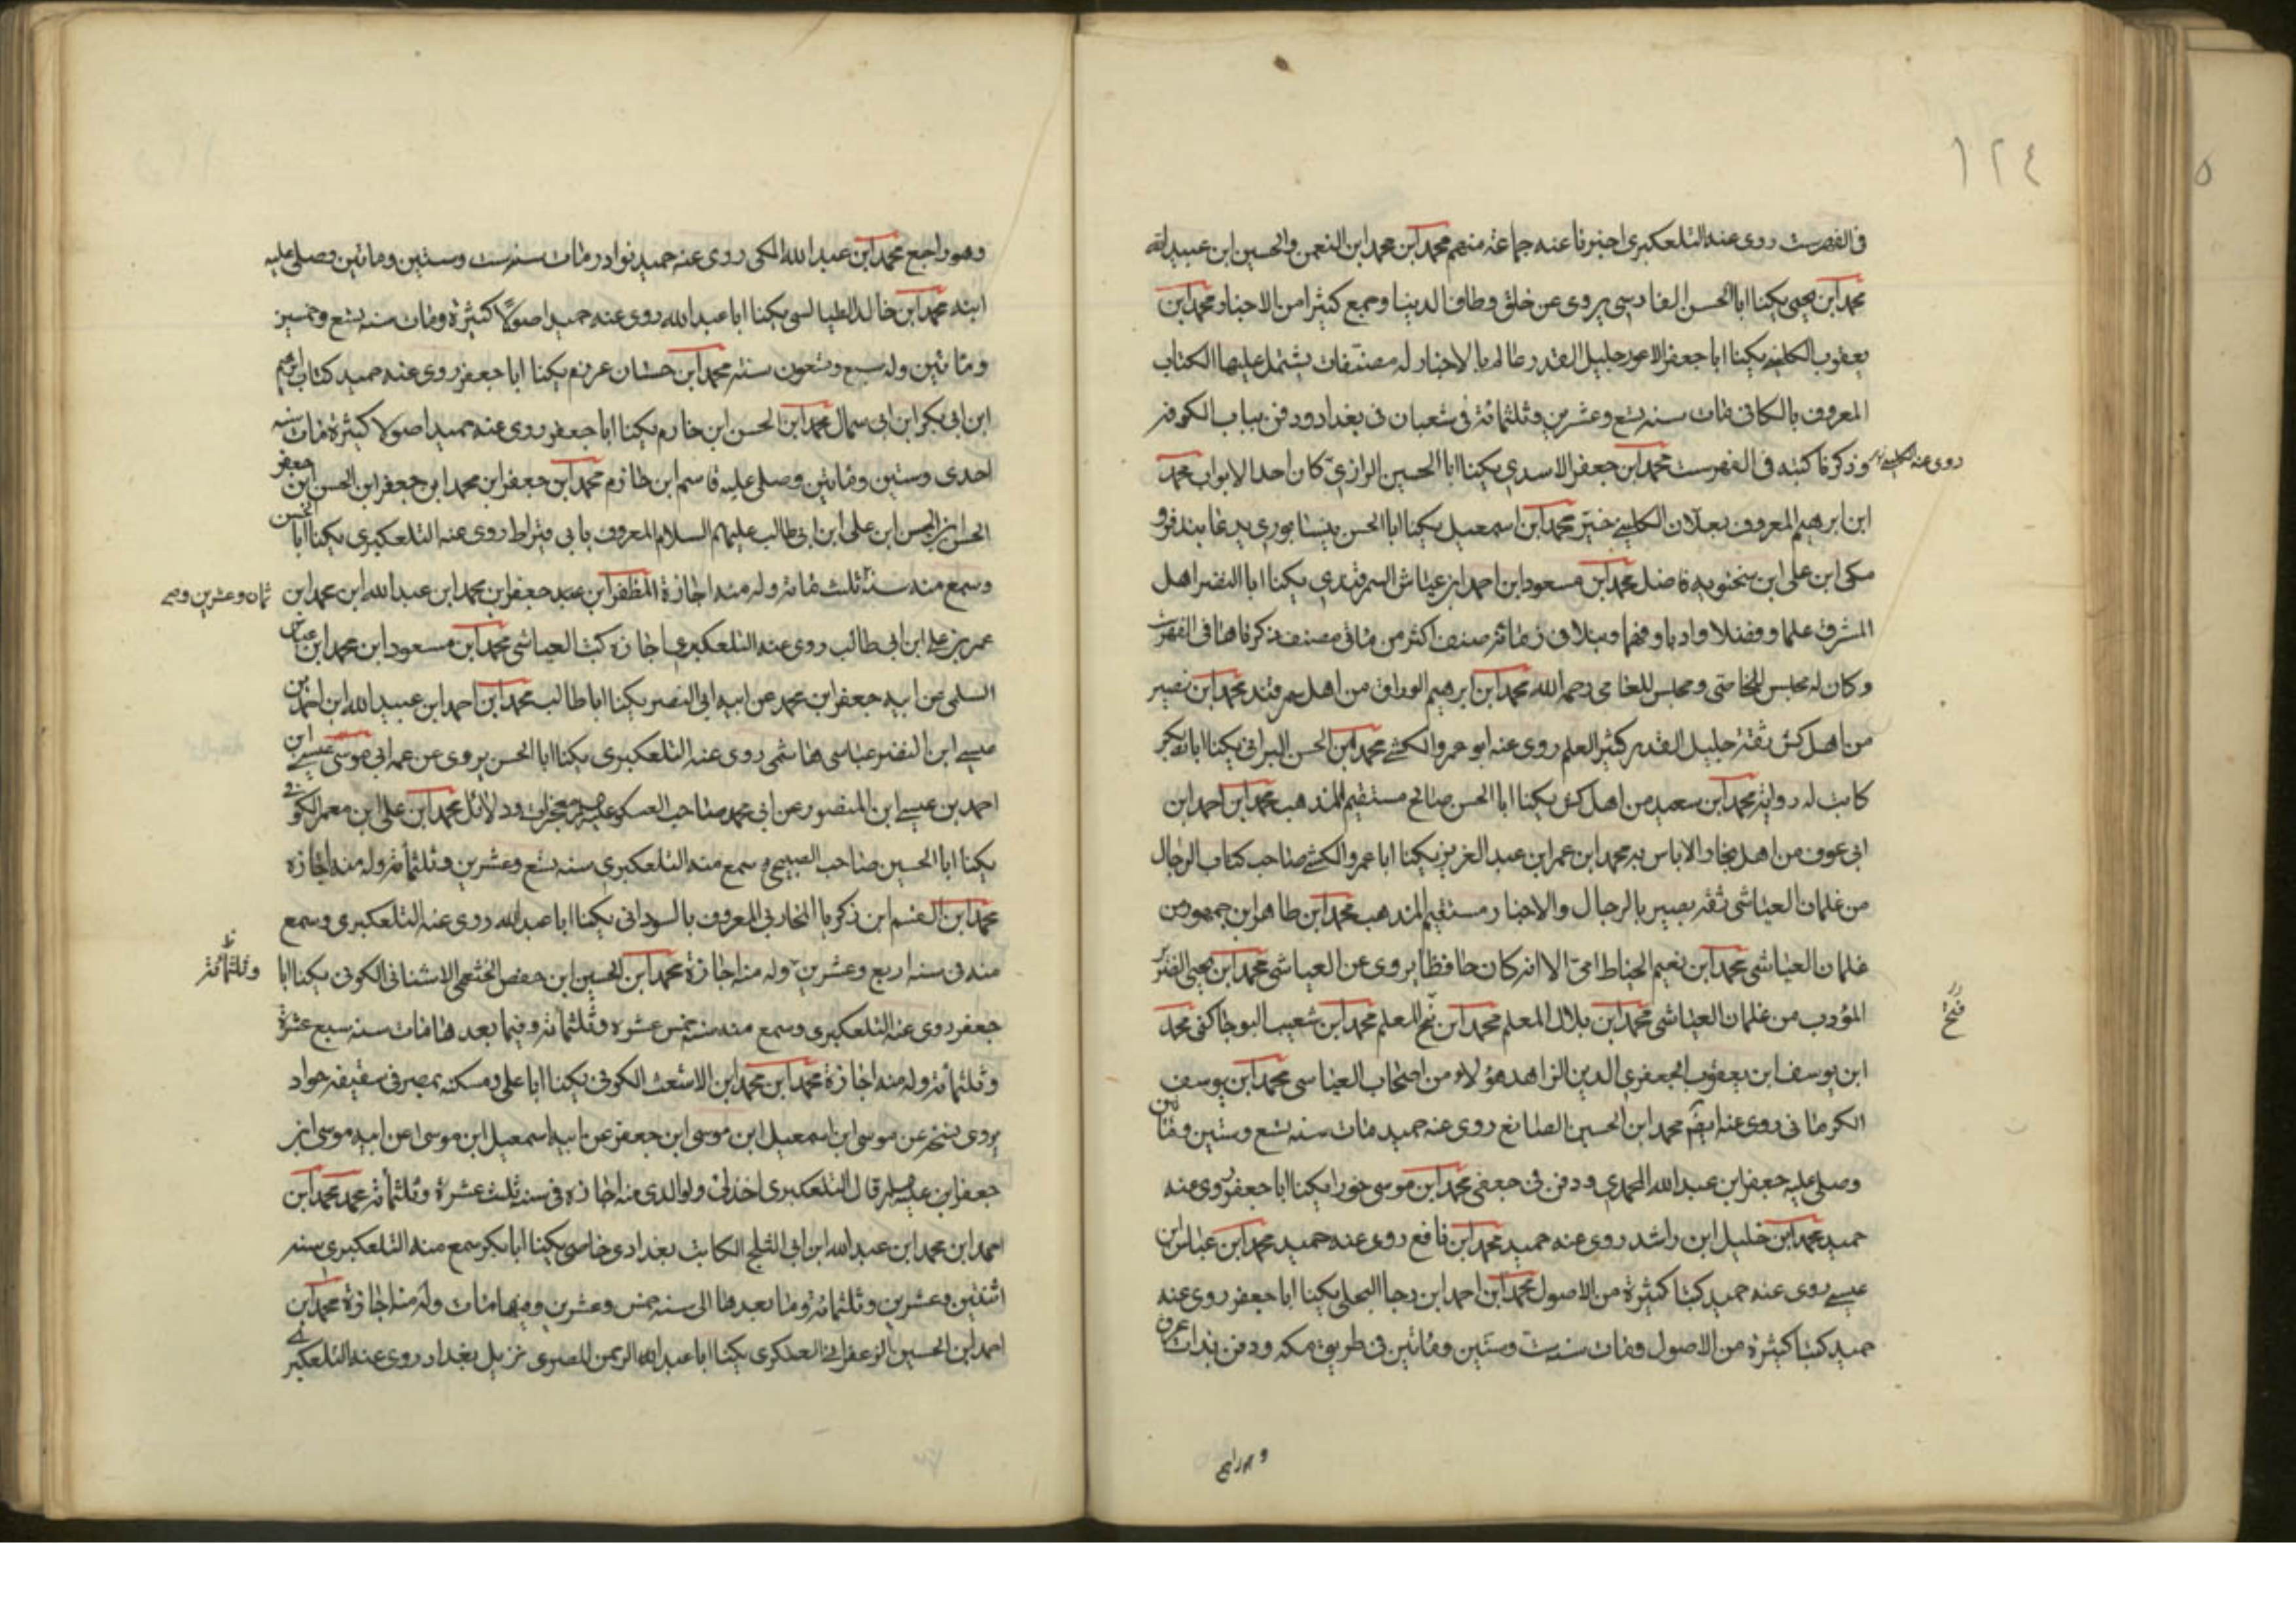 ١٢٤
في الفهرست روى عنه التلعكبري اخبرنا عنه جماعة منهم محمد ابن محمد ابن النعمن والحسين ابن عبيد الله
محمد ابن يحيى يكنا ابا الحسن الفارسي يروى عن خلق وطاف الدنيا وجمع كثيرا من الاخبار محمد ابن
يعقوب الكليني يكنا ابا جعفر الاعور جليل القدر عالم بالاخبار له مصنفات يشتمل عليها الكتاب
المعروف بالكافي مات سنه تسع وعشرين وثلثمائة في شعبان في بغداد ودفن بباب الكوفه
وذكرنا كتبه في الفهرست محمد ابن جعفر الاسدي يكنا ابا الحسين الرازي كان احد الابواب محمد
روى عنه الكليني
ابن ابرهيم المعروف بعلان الكليني خير محمد ابن اسمعيل يكنا ابا الحسن نيسابوري يدعا بندفرو
مكى ابن على ابن سختويه فاضل محمد ابن مسعود ابن احمد ابن عياش السمرقندي يكنا ابا النضر اهل
المشرق علما وفضلا وادبا وفهما ونبلا في زمانه صنف اكثر من مائتي مصنف ذكرناها في الفهرست
وكان له مجلس للخاصي ومجلس للعامي رحمه الله محمد ابن ابرهيم الوراق من اهل سمرقند محمد ابن نصير
من اهل كش ثقة جليل القدر كثير العلم روى عنه ابو عمرو الكشي محمد ابن الحسن البراثي يكنا ابا بكر
كاتب له رواية محمد ابن سعيد من اهل كش يكنا ابا الحسن صالح مستقيم المذهب محمد ابن احمد ابن
ابي عوف من اهل بخارا لاباس به محمد ابن عمر ابن عبد العزيز يكنا ابا عمرو الكشي صاحب كتاب الرجال
من غلمان العياشي ثقه بصير بالرجال والاخبار مستقيم المذهب محمد ابن طاهر ابن جمهور من
غلمان العياشي محمد ابن نعيم الخياط امي الا انه كان حافظا يروى عن العياشي محمد ابن يحيى
المؤدب من غلمان العياشي محمد ابن بلال المعلم محمد ابن فتح المعلم محمد ابن شعيب البوجاكني محمد
فتح
ابن يوسف ابن يعقوب الجعفري الدين الزاهد هؤلاء من اصحاب العياشي محمد ابن يوسف
الكرماني روى عنه ايضا محمد ابن الحسين الصايغ روى عنه حميد مات سنه تسع وستين ومائتين
وصلى عليه جعفر ابن عبد الله المحمدي ودفن في جعفي محمد ابن موسى خورا يكنا ابا جعفر روى عنه
حميد محمد ابن خليل ابن راشد روى عنه حميد محمد ابن نافع روى عنه حميد محمد ابن عباس ابن
عيسى روى عنه حميد كتبا كثيرة من الاصول محمد ابن احمد ابن رجا البجلي يكنا ابا جعفر روى عنه
حميد كتبا كثيرة من الاصول ومات سنه ست وستين ومائتين في طريق مكه ودفن بذات عرق
وهو راجع
وهو راجع محمد ابن عبد الله المكى روى عنه حميد نوادر مات سنه ست وستين ومائتين وصلى عليه
ابنه محمد ابن خالد الطيالسي يكنا ابا عبد الله روى عنه حميد اصولا كثيرة ومات سنه تسع وخمسين
ومائتين وله سبع وتسعون سنة محمد ابن حسان عرزم يكنا ابا جعفر روى عنه حميد كتاب ابرهيم
ابن ابي بكر ابن ابي سمال محمد ابن الحسن ابن خازم يكنا ابا جعفر روى عنه حميد اصولا كثيرة مات سنه
احدى وستين ومائتين وصلى عليه قاسم ابن خازم محمد ابن جعفر ابن محمد ابن جعفر ابن الحسن ابن جعفر
الحسن ابن الحسن ابن على ابن ابي طالب عليهم السلام المعروف بابي قيراط روى عنه التلعكبري يكنا ابا الحسن
وسمع منه سنة ثلث مائة وله منه اجازة المظفر ابن جعفر ابن محمد ابن عبد الله ابن محمد ابن
ثمان وعشرين
عمر بن على ابن ابي طالب روى عنه التلعكبري اجازه كتب العياشي محمد ابن مسعود ابن محمد ابن عياش
السلمى عن ابيه جعفر ابن محمد عن ابيه ابي النصر يكنا ابا طالب محمد ابن احمد ابن عبيد الله ابن احمد بن
عيسى ابن المنصور عباسي هاشمي روى عنه التلعكبري يكنا ابا الحسن يروى عن عمه ابي موسى عيسى ابن
احمد بن عيسى ابن المنصور عن ابي محمد صاحب العسكر معجزات ودلائل محمد ابن على ابن معمر الكوفي
يكنا ابا الحسين صاحب الصبيحي سمع منه التلعكبري سنه تسع وعشرين وثلثمائة وله منه اجازه
محمد ابن القسم ابن زكريا المحاربي المعروف بالسوداني يكنا ابا عبد الله روى عنه التلعكبري وسمع
منه في سنه اربع وعشرين وله منه اجازة محمد ابن الحسين ابن حفص الخثعمي الاشناني الكوفي يكنا ابا
وثلثمائة
جعفر روى عنه التلعكبري وسمع منه سنه خمس عشره وثلثمائة وفيما بعدها مات سنه سبع عشرة
وثلثمائة وله منه اجازة محمد ابن محمد ابن الاشعث الكوفي يكنا ابا على ومسكنه بمصر في سقيفه جواد
يروى نسخه عن موسى ابن اسمعيل ابن موسى ابن جعفر عن ابيه اسمعيل ابن موسى عن ابيه موسى ابن
جعفر ابن قال التلعكبري اخذ لي ولوالدى منه اجازه في سنه ثلث عشرة وثلثمائة محمد محمد ابن
احمد ابن محمد ابن عبد الله ابن ابي الثلج الكاتب بغدادي خاصي يكنا ابا بكر سمع منه التلعكبري سنه
اثنتين وعشرين وثلثمائة وما بعدها الى سنه خمس وعشرين وفيها مات وله منه اجازة محمد ابن
احمد ابن الحسين الزعفراني العسكري يكنا ابا عبد الرحمن المصرى نزيل بغداد روى عنه التلعكبري